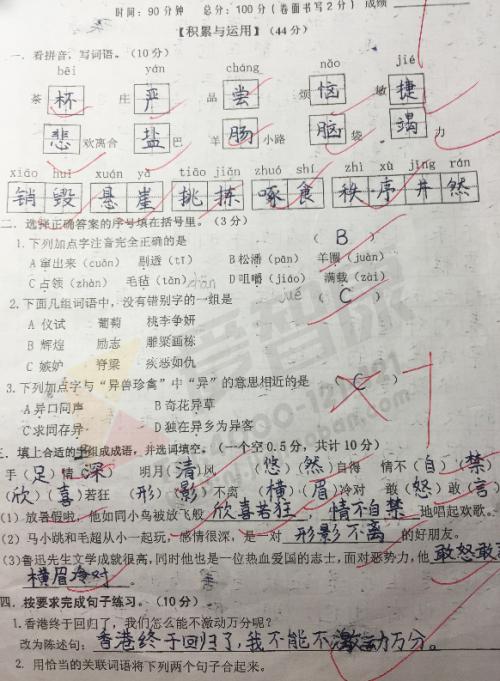 时间:90分钟 总分:100分(卷面书写2分) 成绩
【积累与运用】(44分)
一、看拼音,写词语。(10分)
bēi yán cháng nǎo jié
茶杯 庄严 品尝 烦恼 敏捷
悲欢离合 盐巴 羊肠小路 脑袋 竭力
xiāo huǐ xuán yá tiāo jiǎn zhuó shí zhì xù jǐng rán
销毁 悬崖 挑拣 啄食 秩序井然
二、选择正确答案的序号填在括号里。(3分)
1.下列加点字注音完全正确的是 ( B )
A 窜出来(cuān) 剔透(tī) B 松潘(pān) 羊圈(juàn)
C 占领(zhàn) 毛毡(tǎn) zhān D 咀嚼(jiáo) 满载(zài)
jué
2.下面几组词语中,没有错别字的一组是 ( C )
A 仪试 葡萄 桃李争妍
B 辉煌 励志 雕梁画栋
C 嫉妒 脊梁 疾恶如仇
3.下列加点字与“异兽珍禽”中“异”的意思相近的是 ( C )
A 异口同声 B 奇花异草
C 求同存异 D 独在异乡为异客
三.填上合适的字组成成语,并选词填空。(一个空0.5分,共计10分)
手(足)情(深) 明月(清)风 (悠)(然)自得 情不(自)(禁)
(欣)(喜)若狂 (形)(影)不离 (横)(眉)冷对 敢(怒)敢(言)
(1) 放暑假啦,他如同小鸟被放飞般 欣喜若狂 , 情不自禁 地唱起欢歌。
(2) 马小跳和毛超从小一起玩,感情很深,是一对 形影不离 的好朋友。
(3)鲁迅先生文学成就很高,同时他也是一位热血爱国的志士,面对恶势力,他 敢怒敢言
横眉冷对
四.按要求完成句子练习。(10分)
1.香港终于回归了,我们怎么能不激动万分呢?
改为陈述句:香港终于回归了,我不能不激动万分。
2. 用恰当的关联词语将下列两个句子合起来。